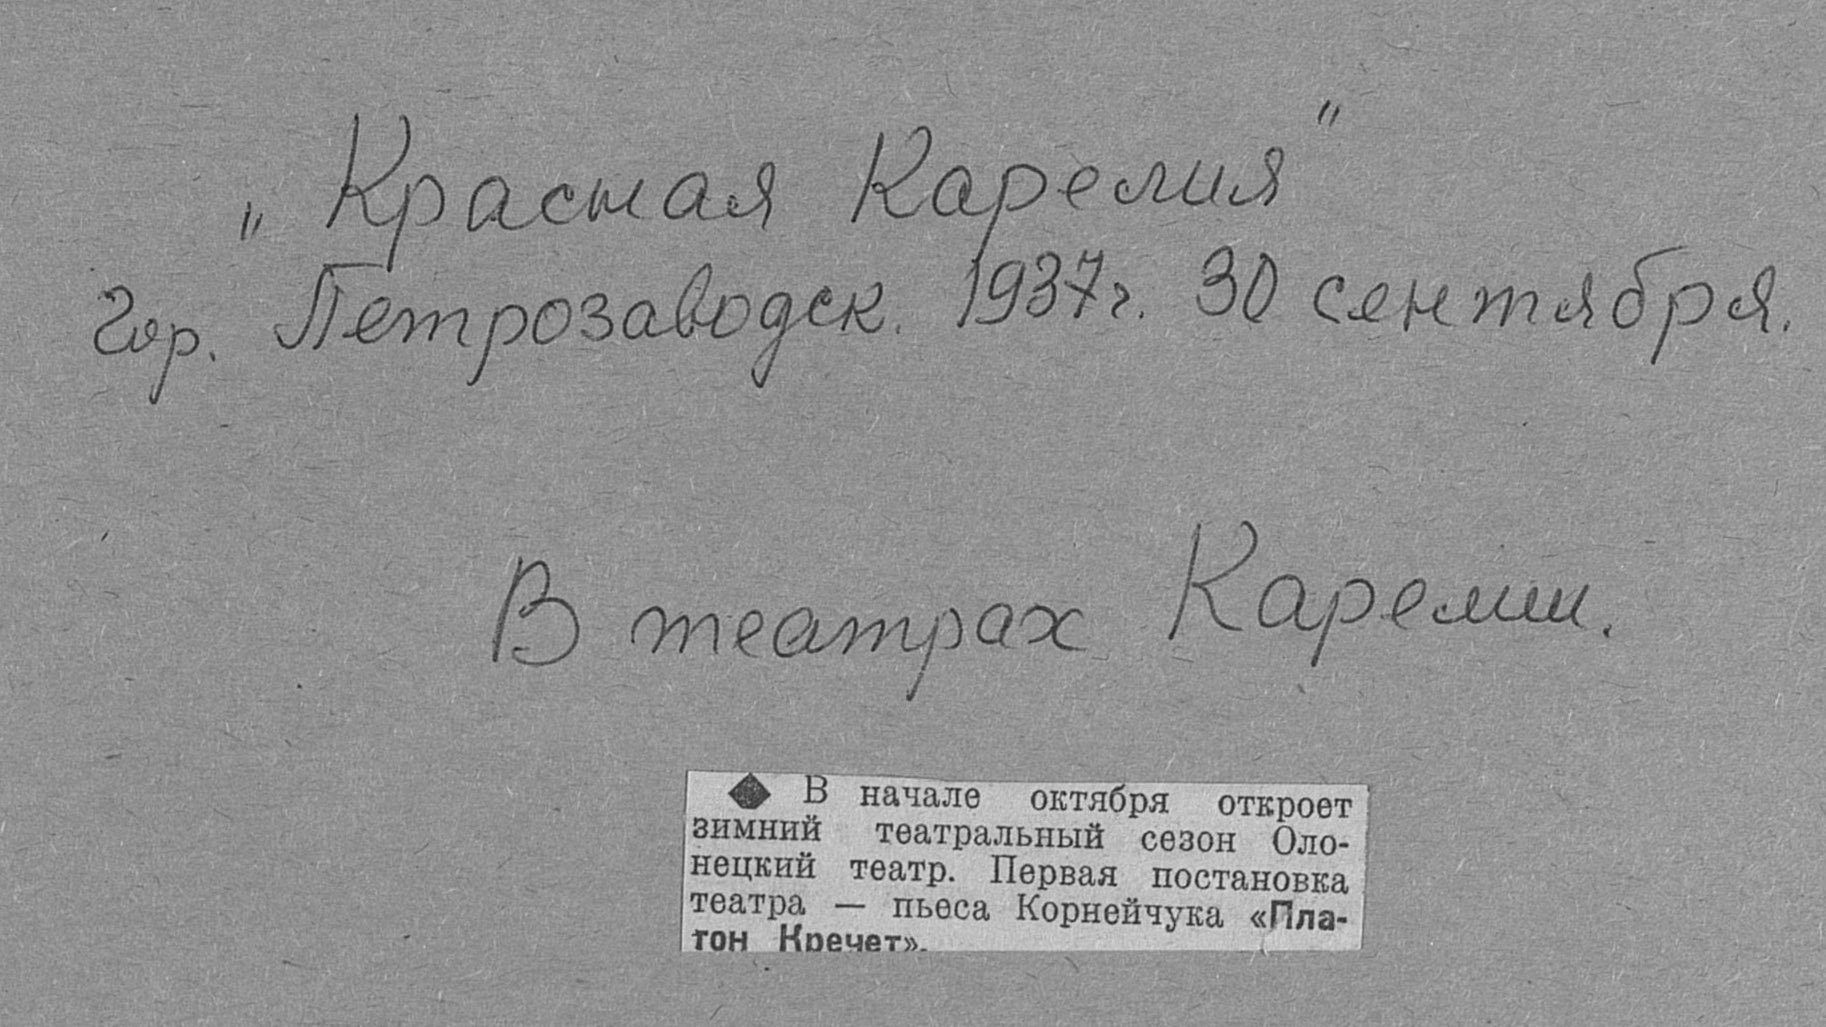 „Красная Карелия"
Гор. Петрозаводск. 1937 г. 30 сентября.
В театрах Карелии.
◆ В начале октября откроет
зимний театральный сезон Оло-
нецкий театр. Первая постановка
театра — пьеса Корнейчука «Пла-
тон Кречет».